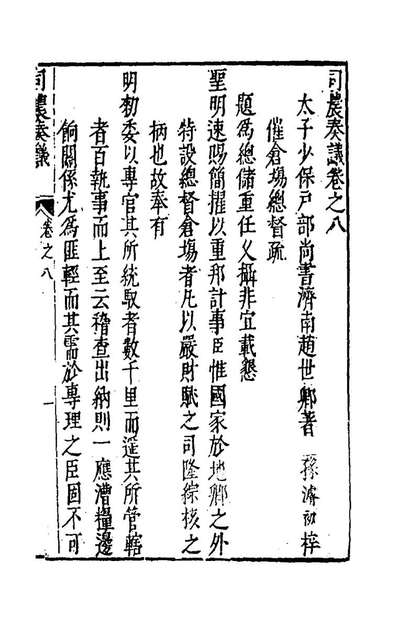 司農奏議卷之八
太子少保戶部尚書濟南趙世卿著 孫濬初梓
催倉場總督疏
題爲總儲重任久攝非宜載懇
聖明速賜簡擢以重邦計事臣惟國家於地卿之外
特設總督倉場者凡以嚴財賦之司隆綜核之
柄也故奉有
明勑委以專官其所統馭者數千里而遥其所管轄
者百執事而上至云稽查出納則一應漕糧邊
餉關係尤爲匪輕而其需於專理之臣固不可
司農奏議
卷之八
一